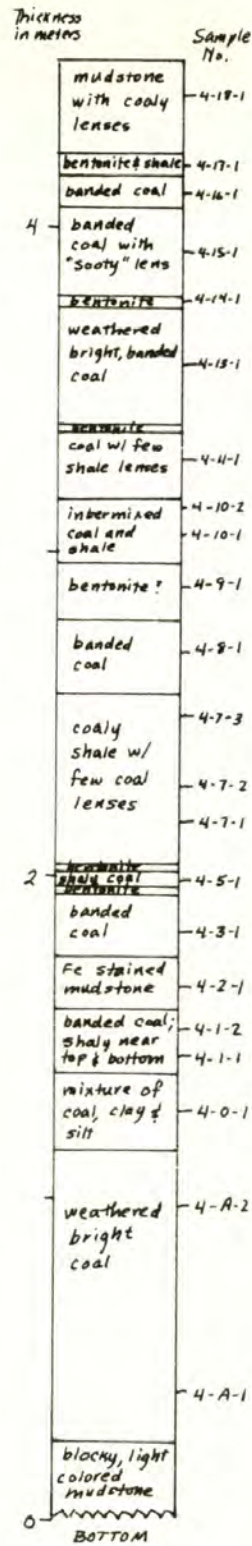 Thickness
in meters
Sample
No.
mudstone
with coaly
lenses
4-18-1
bentonite & shale
4-17-1
banded coal
4-16-1
4
banded
coal with
"Sooty" lens
4-15-1
bentonite
4-14-1
weathered
bright, banded
coal
4-13-1
bentonite
coal w/ few
shale lenses
4-11-1
intermixed
coal and
shale
4-10-2
4-10-1
bentonite?
4-9-1
banded
coal
4-8-1
coaly
shale w/
few coal
lenses
4-7-3
4-7-2
4-7-1
bentonite
2
shaly coal
4-5-1
bentonite
banded
coal
4-3-1
Fe stained
mudstone
4-2-1
banded coal;
shaly near
top & bottom
4-1-2
4-1-1
mixture of
coal, clay &
silt
4-0-1
weathered
bright
coal
4-A-2
4-A-1
blocky, light
colored
mudstone
0
BOTTOM